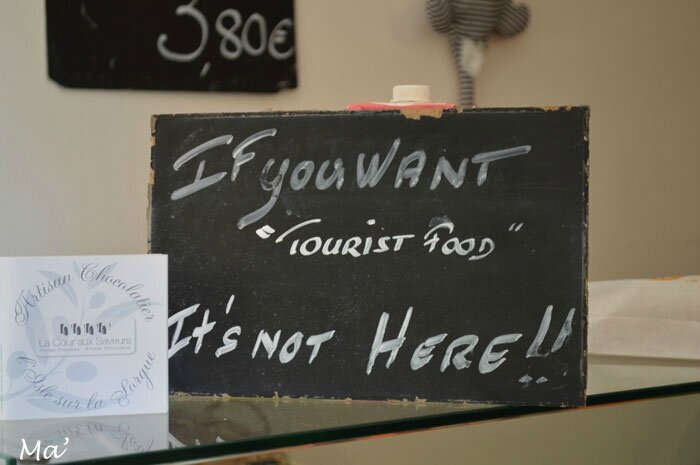 3,80€
IF you WANT
"TOURIST FOOD"
IT'S NOT HERE!!
Artisan Chocolatier
La Cour aux Saveurs
l'Isle sur la Sorgue
Ma'